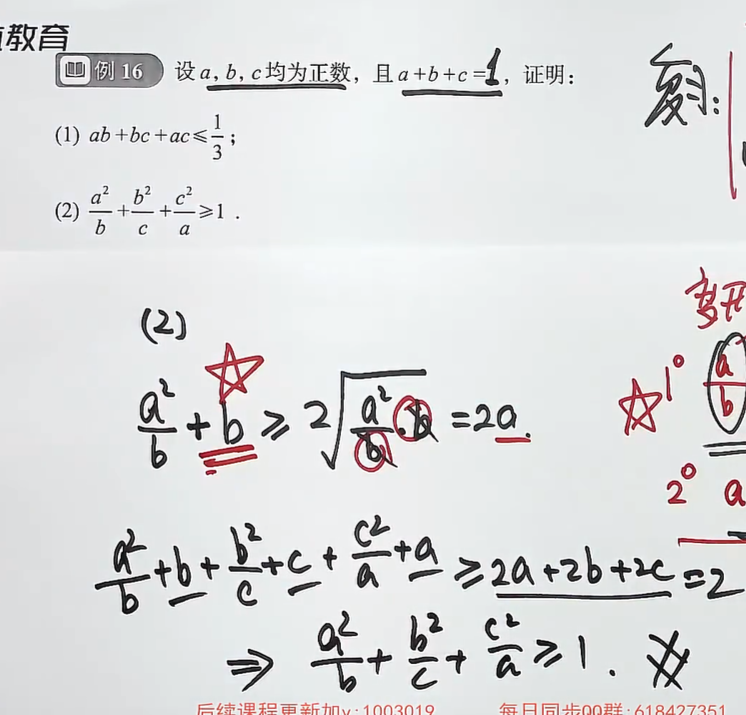 教育
例 16 设 a, b, c 均为正数，且 a+b+c=1，证明：
(1) ab+bc+ac≤1/3；
(2) a²/b+b²/c+c²/a≥1．
复习：
(2)
a²/b+b≥2√(a²/b·b)=2a.
1° a/b
2° a
a²/b+b+b²/c+c+c²/a+a≥2a+2b+2c=2
⇒ a²/b+b²/c+c²/a≥1.
后续课程更新加v:1003019 每日同步QQ群:618427351